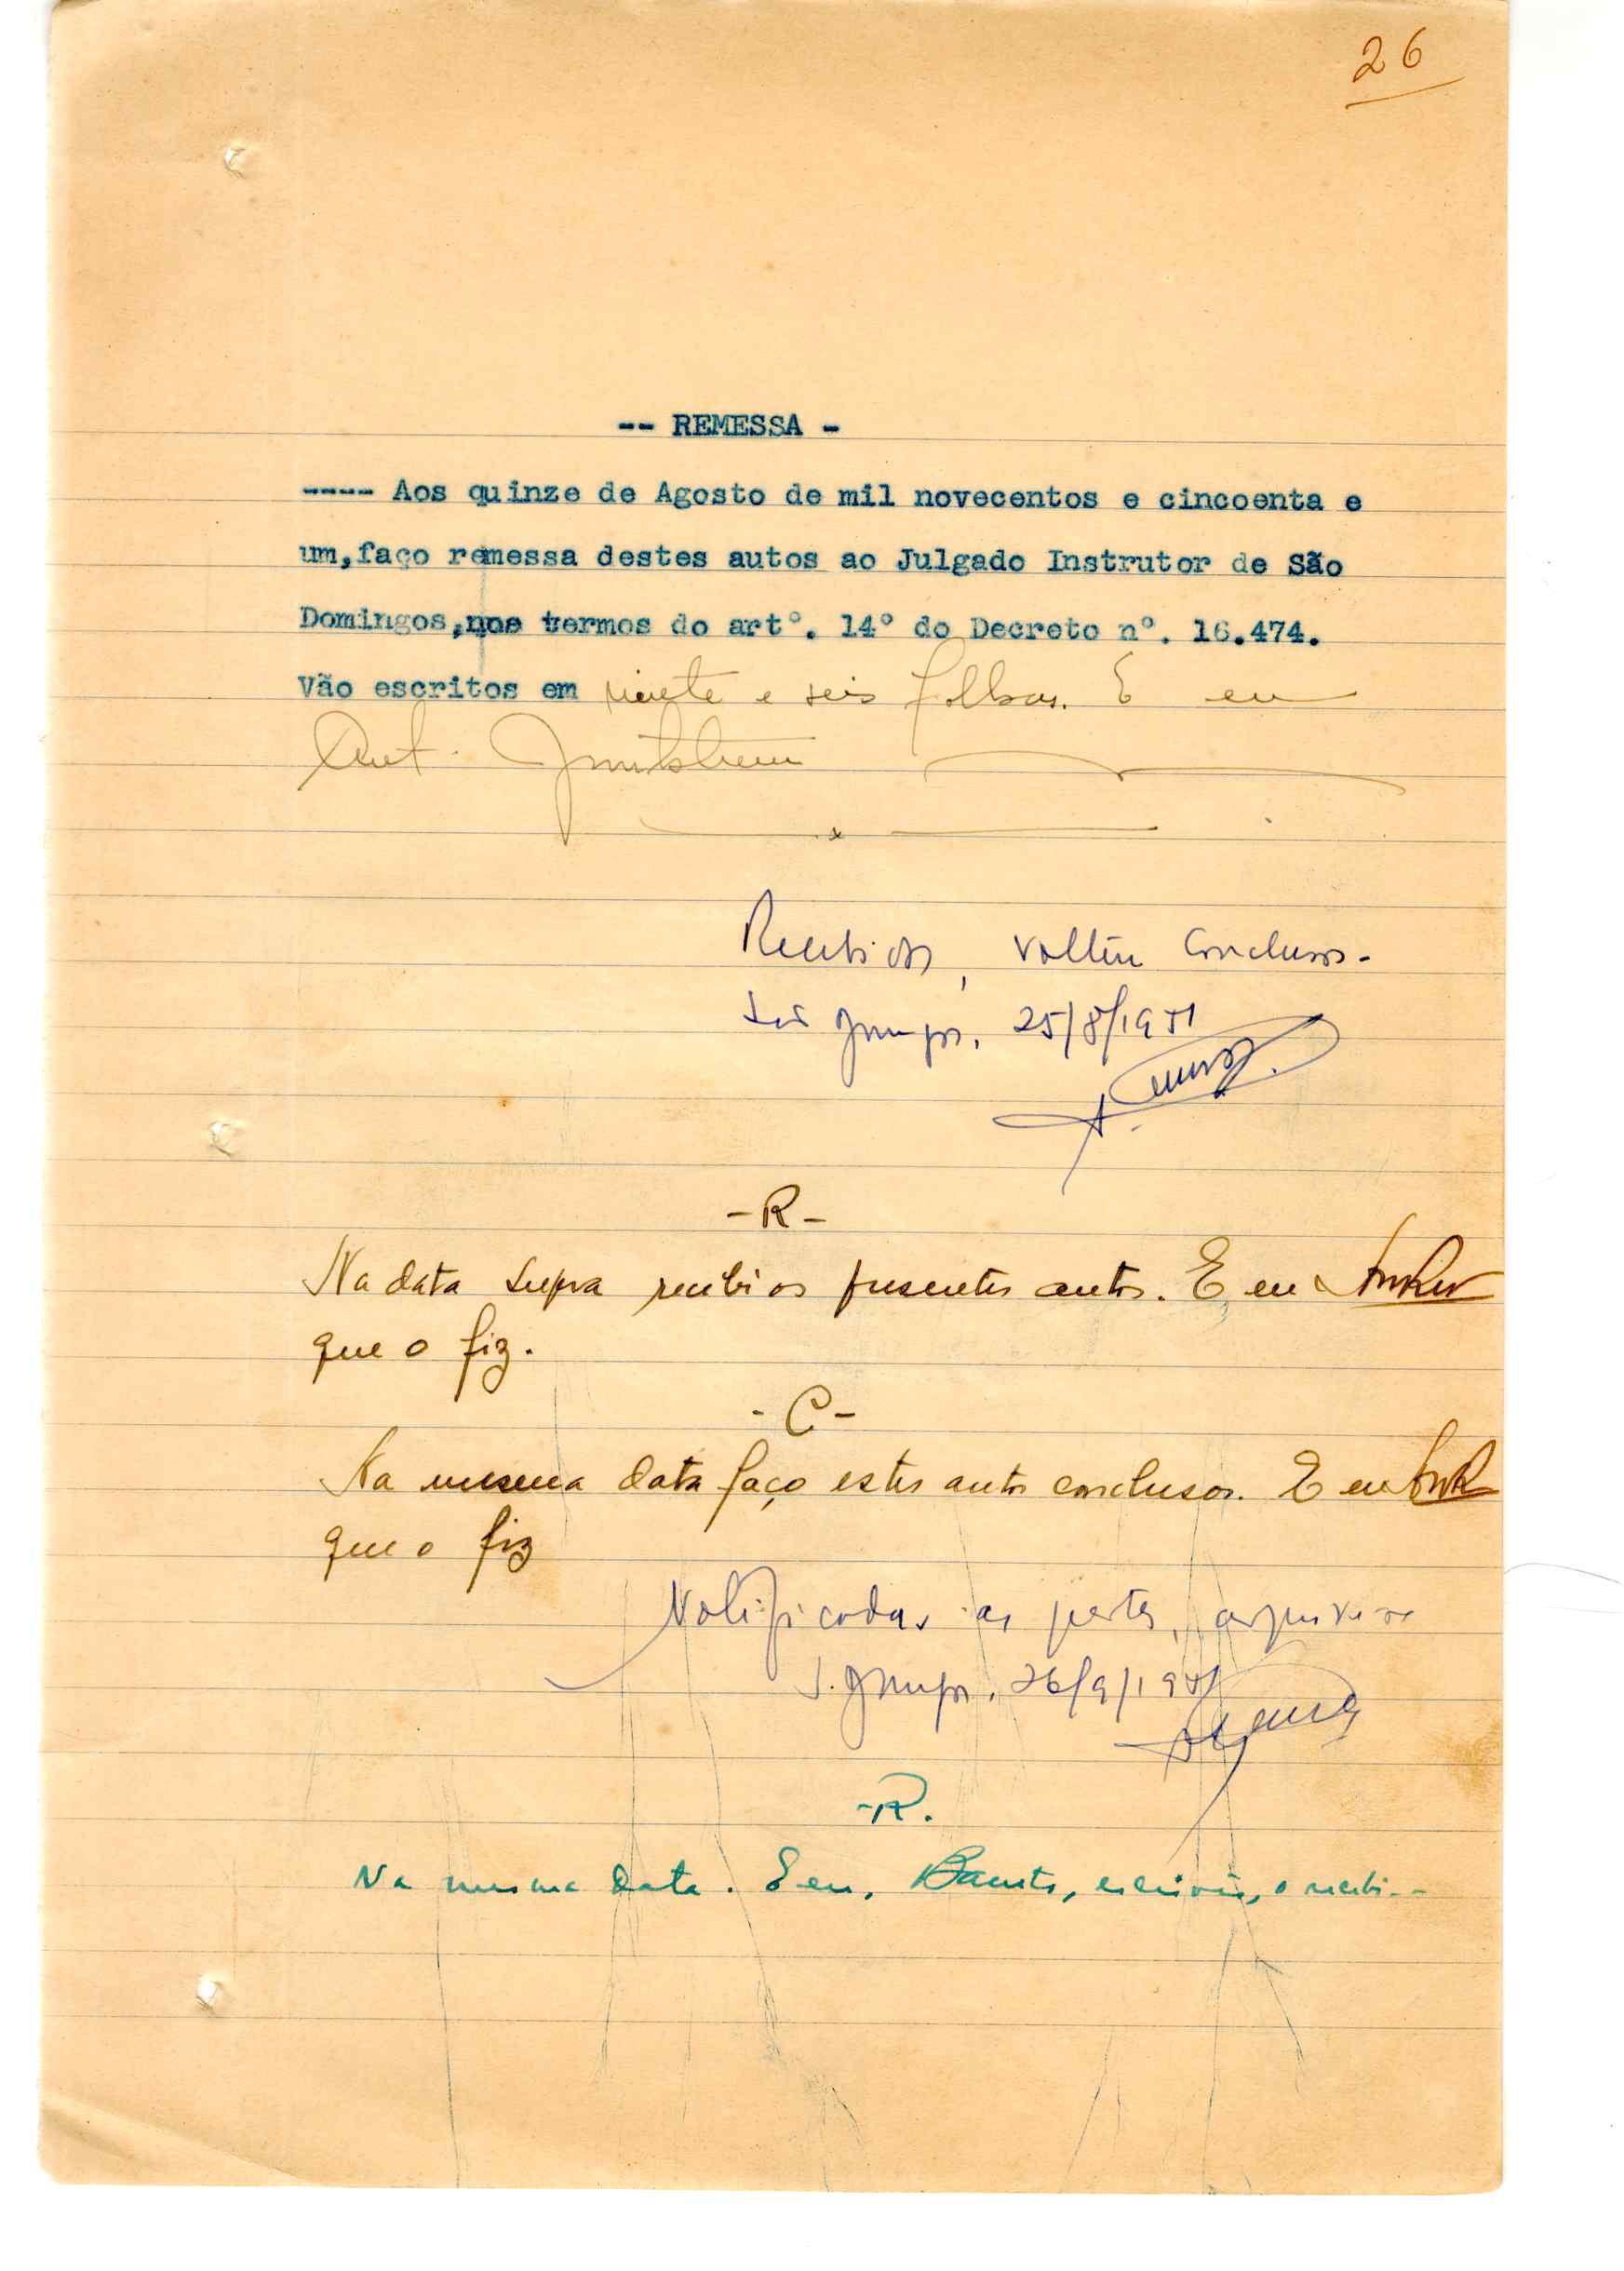 26
-- REMESSA -
---- Aos quinze de Agosto de mil novecentos e cincoenta e
um,faço remessa destes autos ao Julgado Instrutor de São
Domingos,nos termos do artº. 14º do Decreto nº. 16.474.
Vão escritos em vinte e seis folhas. E eu
Ant.
Recebidos, voltem conclusos.
São Domingos, 25/8/1951
-R-
Na data supra recebi os presentes autos. E eu
que o fiz.
-C-
Na mesma data faço estes autos conclusos. E eu
que o fiz
Notificadas as partes, arquive-se
S. Domingos, 26/9/1951
-R.
Na mesma data. E eu, escrivão, o recebi.--